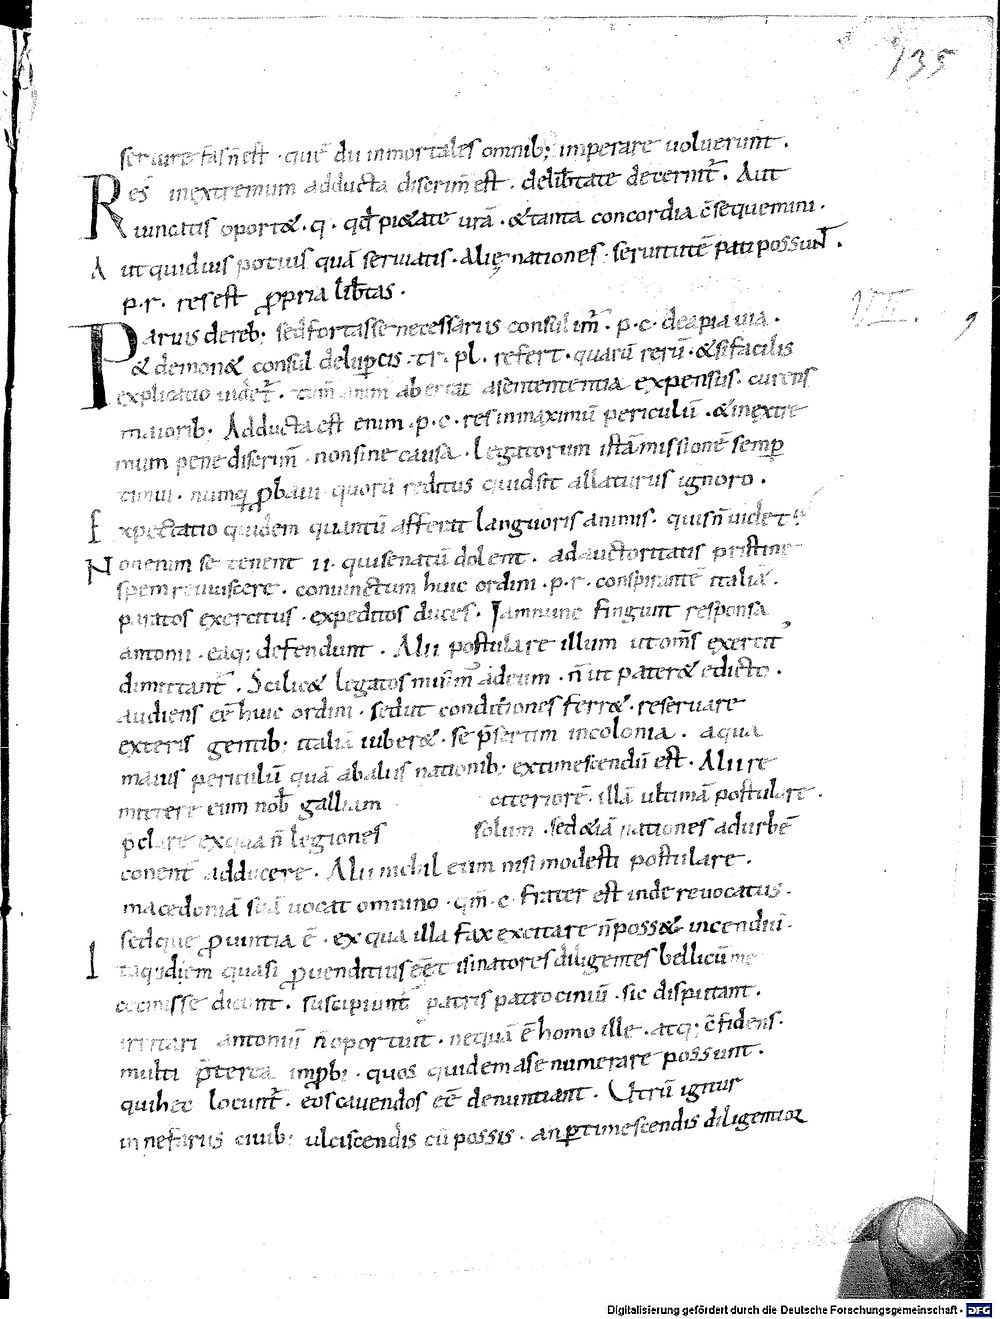 135
seruire fas n̄ est · que᷄ dii inmortales omnib; imperare uoluerunt .
Res inextremum adducta discrim̄ est . delib̄tate decernit᷑ . Aut
uincatis oport& · q · qd̄ pi&ate ur̄a · &tanta concordia c̄sequemini .
Aut quiduis potius quā seruiatis · Alię nationes · seruitutē pati possunt .
p · r · res est ꝓpria lib̄tas .
VII .
Paruis dereb; sed fortasse necessariis consulim̄ · p · c · deapia uia .
& demon& consul delup̱cis · tr · pl . refert · quarū rerū · &si facilis
explicatio uidet᷑ . tam̄ anim aberrat asentententia expensus . curens
maiorib; Adducta est enim · p · c · res inmaximū periculū · &inextre
mum pene discrim̄ · nonsine causa · legatorum istā missionē semꝑ
timui . numqͣ ꝓbaui quorū reditus quidsit allaturus ignoro .
Expectatio quidem quantū afferat languoris animis . quis n̄ uidet ?
Nonenim se tenent ii · quisenatū dolent . adauctoritatis pristine
spem reuiuiscere . coniunctum huic ordini · p · r · conspirantē italiā .
paratos exercitus · expeditos duces . Iamnunc fingunt responsa
antonii · eaq; defendunt . Alii postulare illum utom̄s exercit᾽
dimittant̄ . Scilic& legatos misim᾽ adeum · n̄ ut pater& edicto .
audiens eē huic ordini · sedut conditiones ferr& · reseruare
exteris gentib; italiā iuber& · se p̄sertim incolomi . aqua
maius periculū quā abaliis nationib; extimescendū est . Alii re
mittere eum nob̄ galliam citeriorē . illā ultimā postulare .
p̄clare exqua n̄ legiones solum · sed&iā nationes adurbē
conent᷑ adducere . Alii nichil eum nisi modesti postulare .
macedoniā suā uocat omnino · qm̄ · c · frater est inde reuocatus .
sedque ꝓuintia ē · ex qua illa fax excitare n̄ poss& incendiū .
Itaq; idem quasi ꝓuendi senatores diligentes bellicū me
cecinisse dicunt . suscipiunt patris patrocinium · sic disputant .
irritari antoniū n̄oportuit . nequā ē homo ille · atq; c̄fidens .
multi p̄terea imꝓbi · quos quidem ase numerare possunt .
quihec locunt᷑ . eos cauendos eē denuntiant . Utrū igitur
innefariis ciuib; ulciscendis cū possis · an ꝑtimescendis diligentior
Digitalisierung gefördert durch die Deutsche Forschungsgemeinschaft - DFG